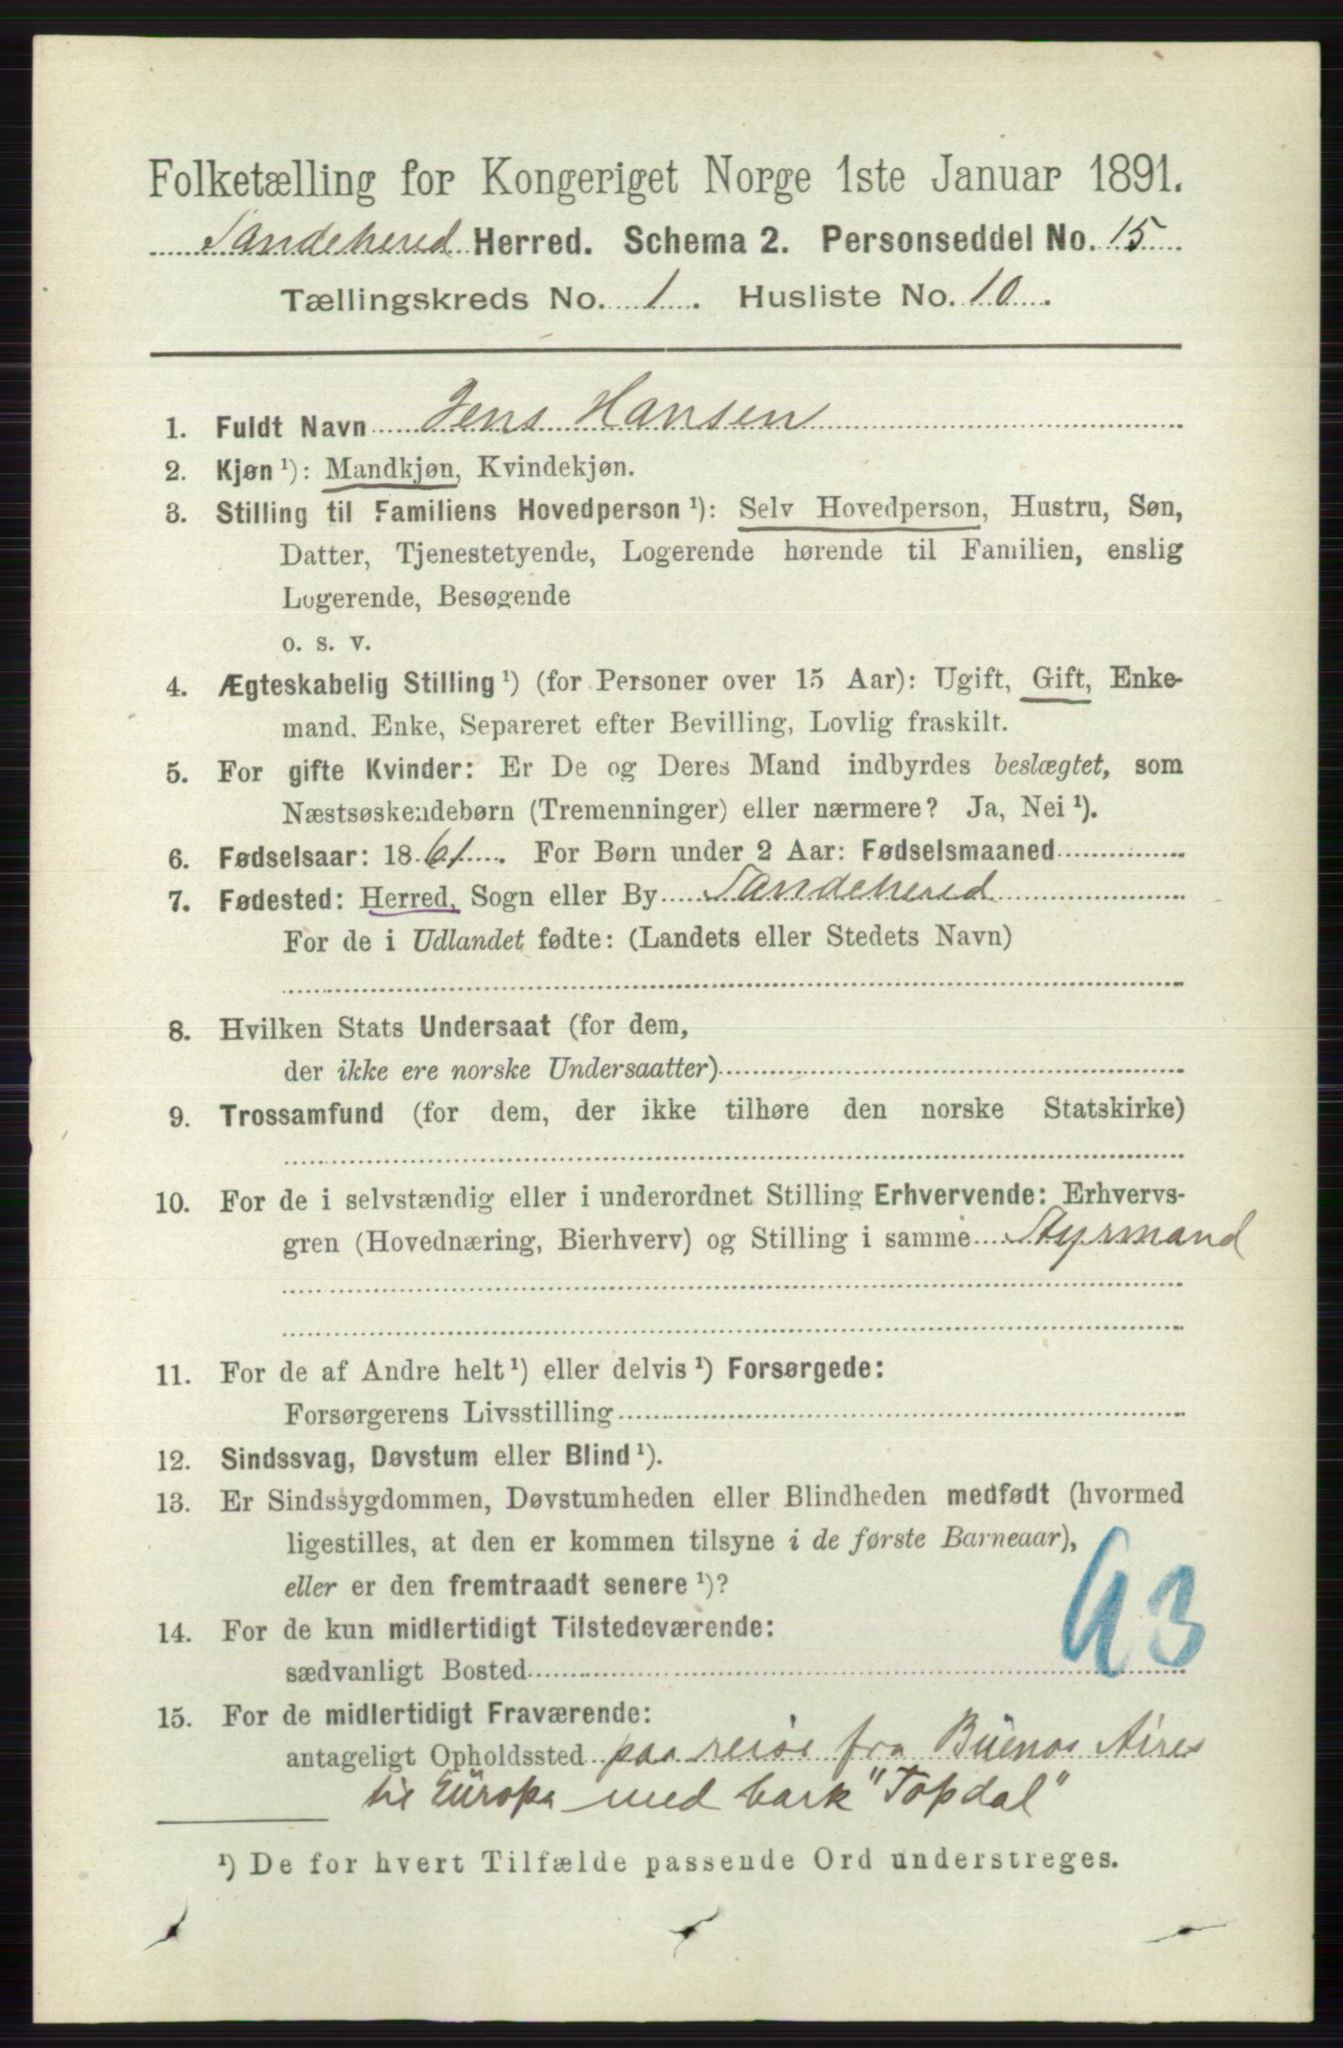 Folketælling for Kongeriget Norge 1ste Januar 1891.
Sandeherred Herred. Schema 2. Personseddel No. 15
Tællingskreds No. 1. Husliste No. 10.
1. Fuldt Navn Jens Hansen
2. Kjøn ¹): Mandkjøn, Kvindekjøn.
3. Stilling til Familiens Hovedperson ¹): Selv Hovedperson, Hustru, Søn,
Datter, Tjenestetyende, Logerende hørende til Familien, enslig
Logerende, Besøgende
o. s. v.
4. Ægteskabelig Stilling ¹) (for Personer over 15 Aar): Ugift, Gift, Enke-
mand. Enke, Separeret efter Bevilling, Lovlig fraskilt.
5. For gifte Kvinder: Er De og Deres Mand indbyrdes beslægtet, som
Næstsøskendebørn (Tremenninger) eller nærmere? Ja, Nei ¹).
6. Fødselsaar: 1861. For Børn under 2 Aar: Fødselsmaaned
7. Fødested: Herred, Sogn eller By Sandeherred
For de i Udlandet fødte: (Landets eller Stedets Navn)
8. Hvilken Stats Undersaat (for dem,
der ikke ere norske Undersaatter)
9. Trossamfund (for dem, der ikke tilhøre den norske Statskirke)
10. For de i selvstændig eller i underordnet Stilling Erhvervende: Erhvervs-
gren (Hovednæring, Bierhverv) og Stilling i samme Styrmand
11. For de af Andre helt ¹) eller delvis ¹) Forsørgede:
Forsørgerens Livsstilling
12. Sindssvag, Døvstum eller Blind ¹).
13. Er Sindssygdommen, Døvstumheden eller Blindheden medfødt (hvormed
ligestilles, at den er kommen tilsyne i de første Barneaar),
eller er den fremtraadt senere ¹)?
43
14. For de kun midlertidigt Tilstedeværende:
sædvanligt Bosted
15. For de midlertidigt Fraværende:
antageligt Opholdssted paa reise fra Buenos Aires
til Europa med bark "Topdal"
¹) De for hvert Tilfælde passende Ord understreges.